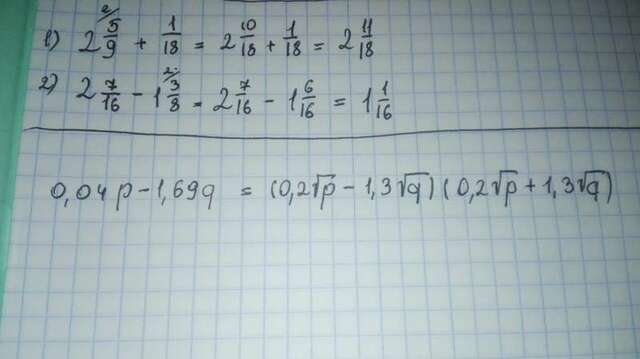 1) 2 5/9 + 1/18 = 2 10/18 + 1/18 = 2 11/18
2) 2 7/16 - 1 3/8 = 2 7/16 - 1 6/16 = 1 1/16
0,04p - 1,69q = (0,2√p - 1,3√q)(0,2√p + 1,3√q)